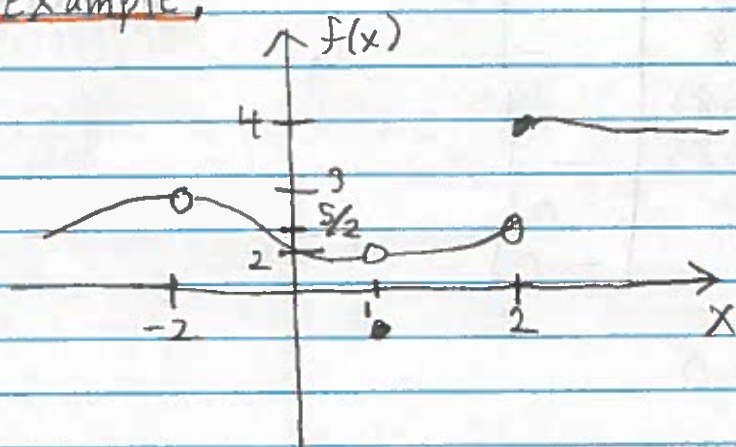 example.
f(x)
4
3
5/2
2
-2
1
2
X